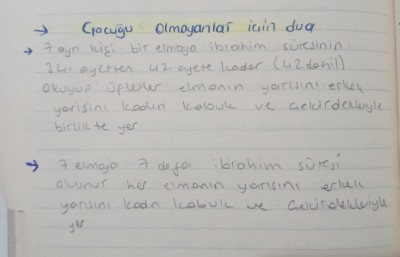 → Çocuğu Olmayanlar için dua
→ 7 ayrı kişi bir elmaya ibrahim süresinin
34. ayetten 42 ayete kadar (42 dahil)
okuyup üflerler elmanın yarısını erkek
yarısını kadın kabuk ve çekirdekleriyle
birlikte yer
→ 7 elmaya 7 defa ibrahim süresi
okunur her elmanın yarısını erkek
yarısını kadın kabuk ve çekirdekleriyle
yer